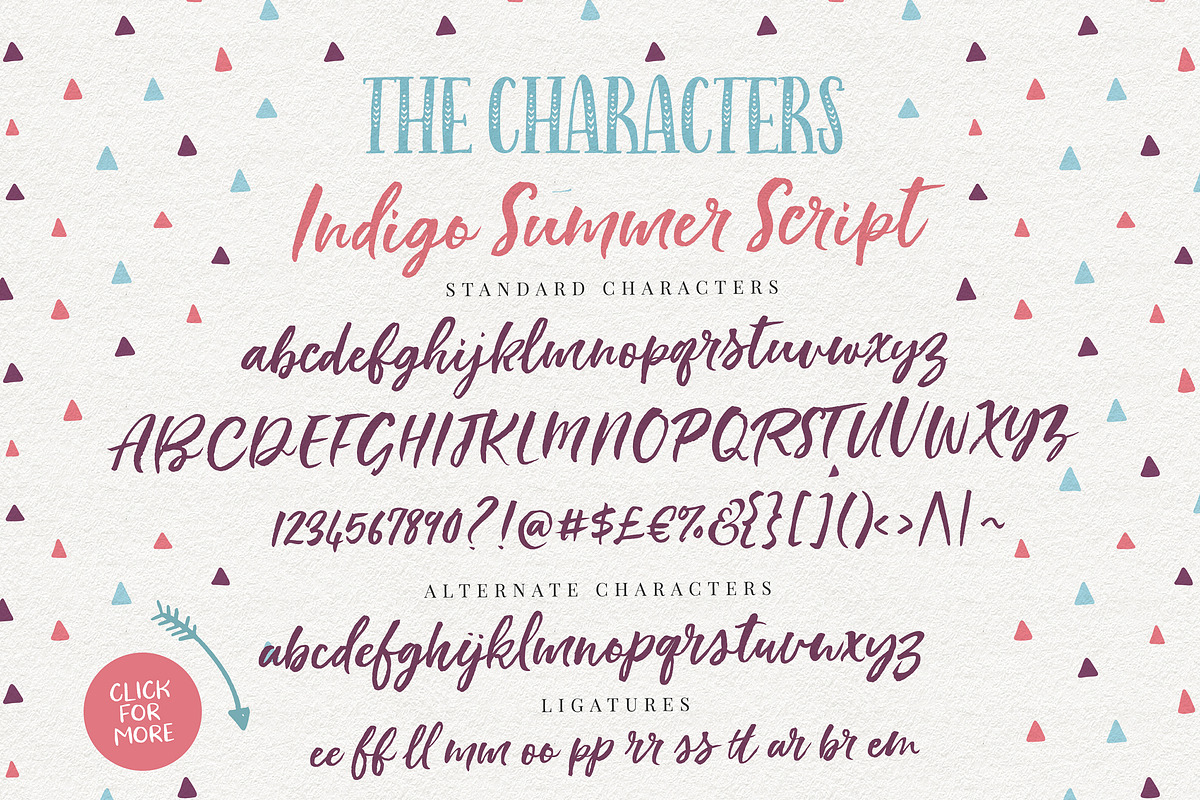 THE CHARACTERS
Indigo Summer Script
STANDARD CHARACTERS
abcdefghijklmnopqrstuvwxyz
ABCDEFGHIJKLMNOPQRSTUVWXYZ
1234567890?!@#$£€%&{}[]()<>/\|~
ALTERNATE CHARACTERS
abcdefghijklmnopqrstuvwxyz
LIGATURES
ee ff ll mm oo pp rr ss tt ar br em
CLICK
FOR
MORE